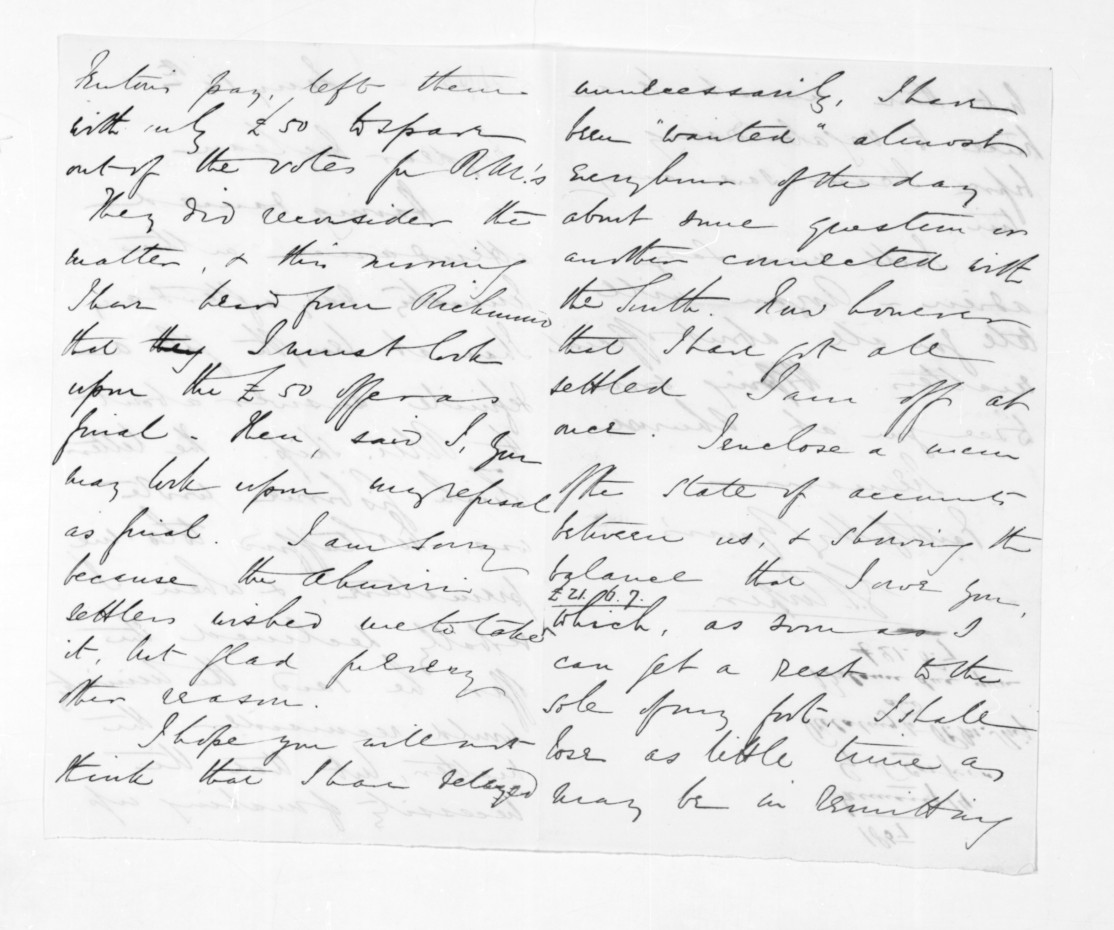 pay, left them
with only £50 to spare
out of the votes for R.M.'s
They did reconsider the
matter, & this morning
I have heard from Richmond
that they I must look
upon the £50 offer as
final - Then, said I, you
may look upon my refusal
as final. I am sorry
because the Ahuriri
settlers wished me to take
it, but glad for every
other reason.
I hope you will not
think that I have delayed
unnecessarily, I have
been "wanted" almost
every hour of the day
about some question or
another connected with
the South. Now however
that I have got all
settled I am off at
once. I enclose a mem
of the state of accounts
between us, & showing the
balance that I owe you,
£21. 6. 7.
which, as soon as I
can get a rest to the
sole of my foot I shall
lose as little time as
may be in remitting